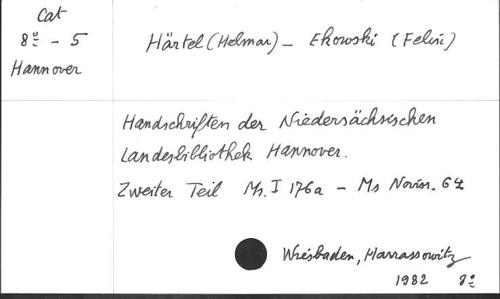 Cat
8º - 5
Hannover
Härtel (Helmar) - Ekowski (Felix)
Handschriften der Niedersächsischen
Landesbibliothek Hannover.
Zweiter Teil Ms. I 176a - Ms Noviss. 64
Wiesbaden, Harrassowitz
1982 8º